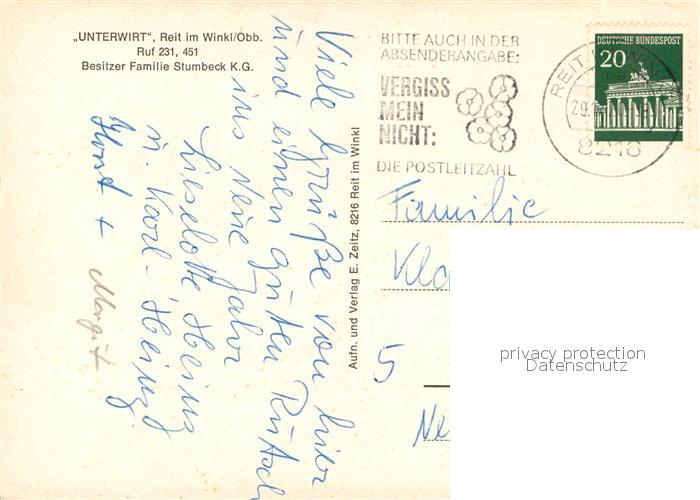 „UNTERWIRT", Reit im Winkl/Obb.
Ruf 231, 451
Besitzer Familie Stumbeck K.G.
Viele Grüße von hier
und einen guten Rutsch
ins Neue Jahr
Liselotte Heinz
u. Karl-Heinz
Horst + Margit
Aufn. und Verlag E. Zeitz, 8216 Reit im Winkl
BITTE AUCH IN DER
ABSENDERANGABE:
VERGISS
MEIN
NICHT:
DIE POSTLEITZAHL
REIT
29.
8216
DEUTSCHE BUNDESPOST
20
Familie
Kla
5
Ne
privacy protection
Datenschutz